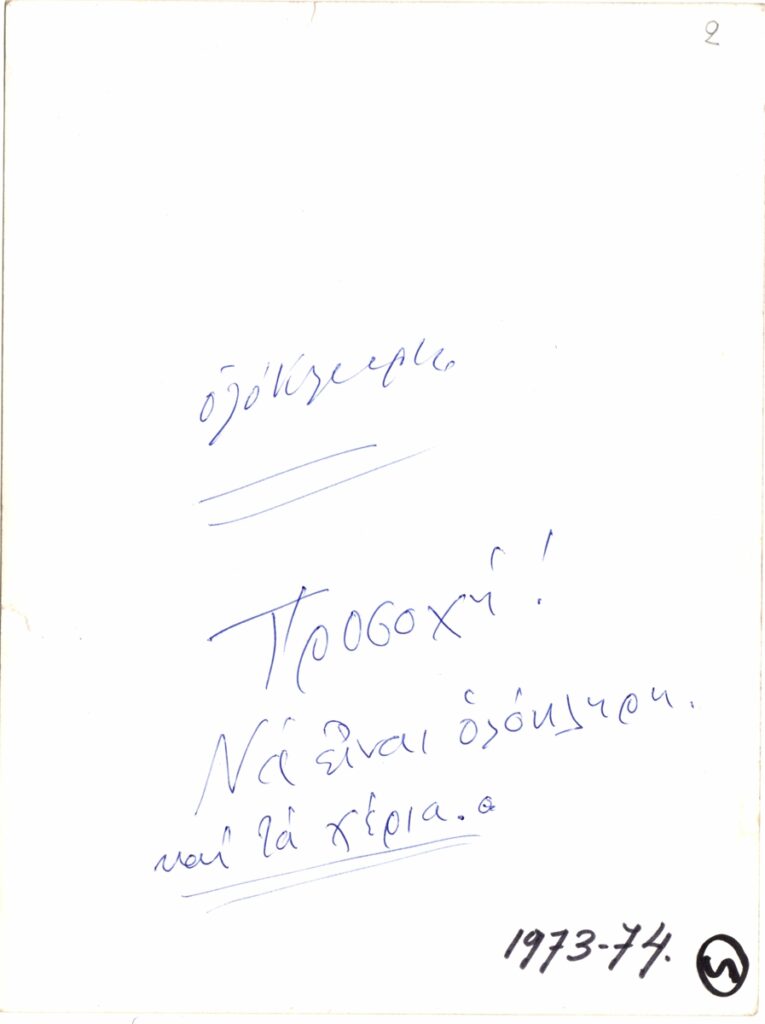 2
ὁλόκληρη.
Προσοχή!
Νά εἶναι ὁλόκληρη.
καί τά χέρια.
1973-74.